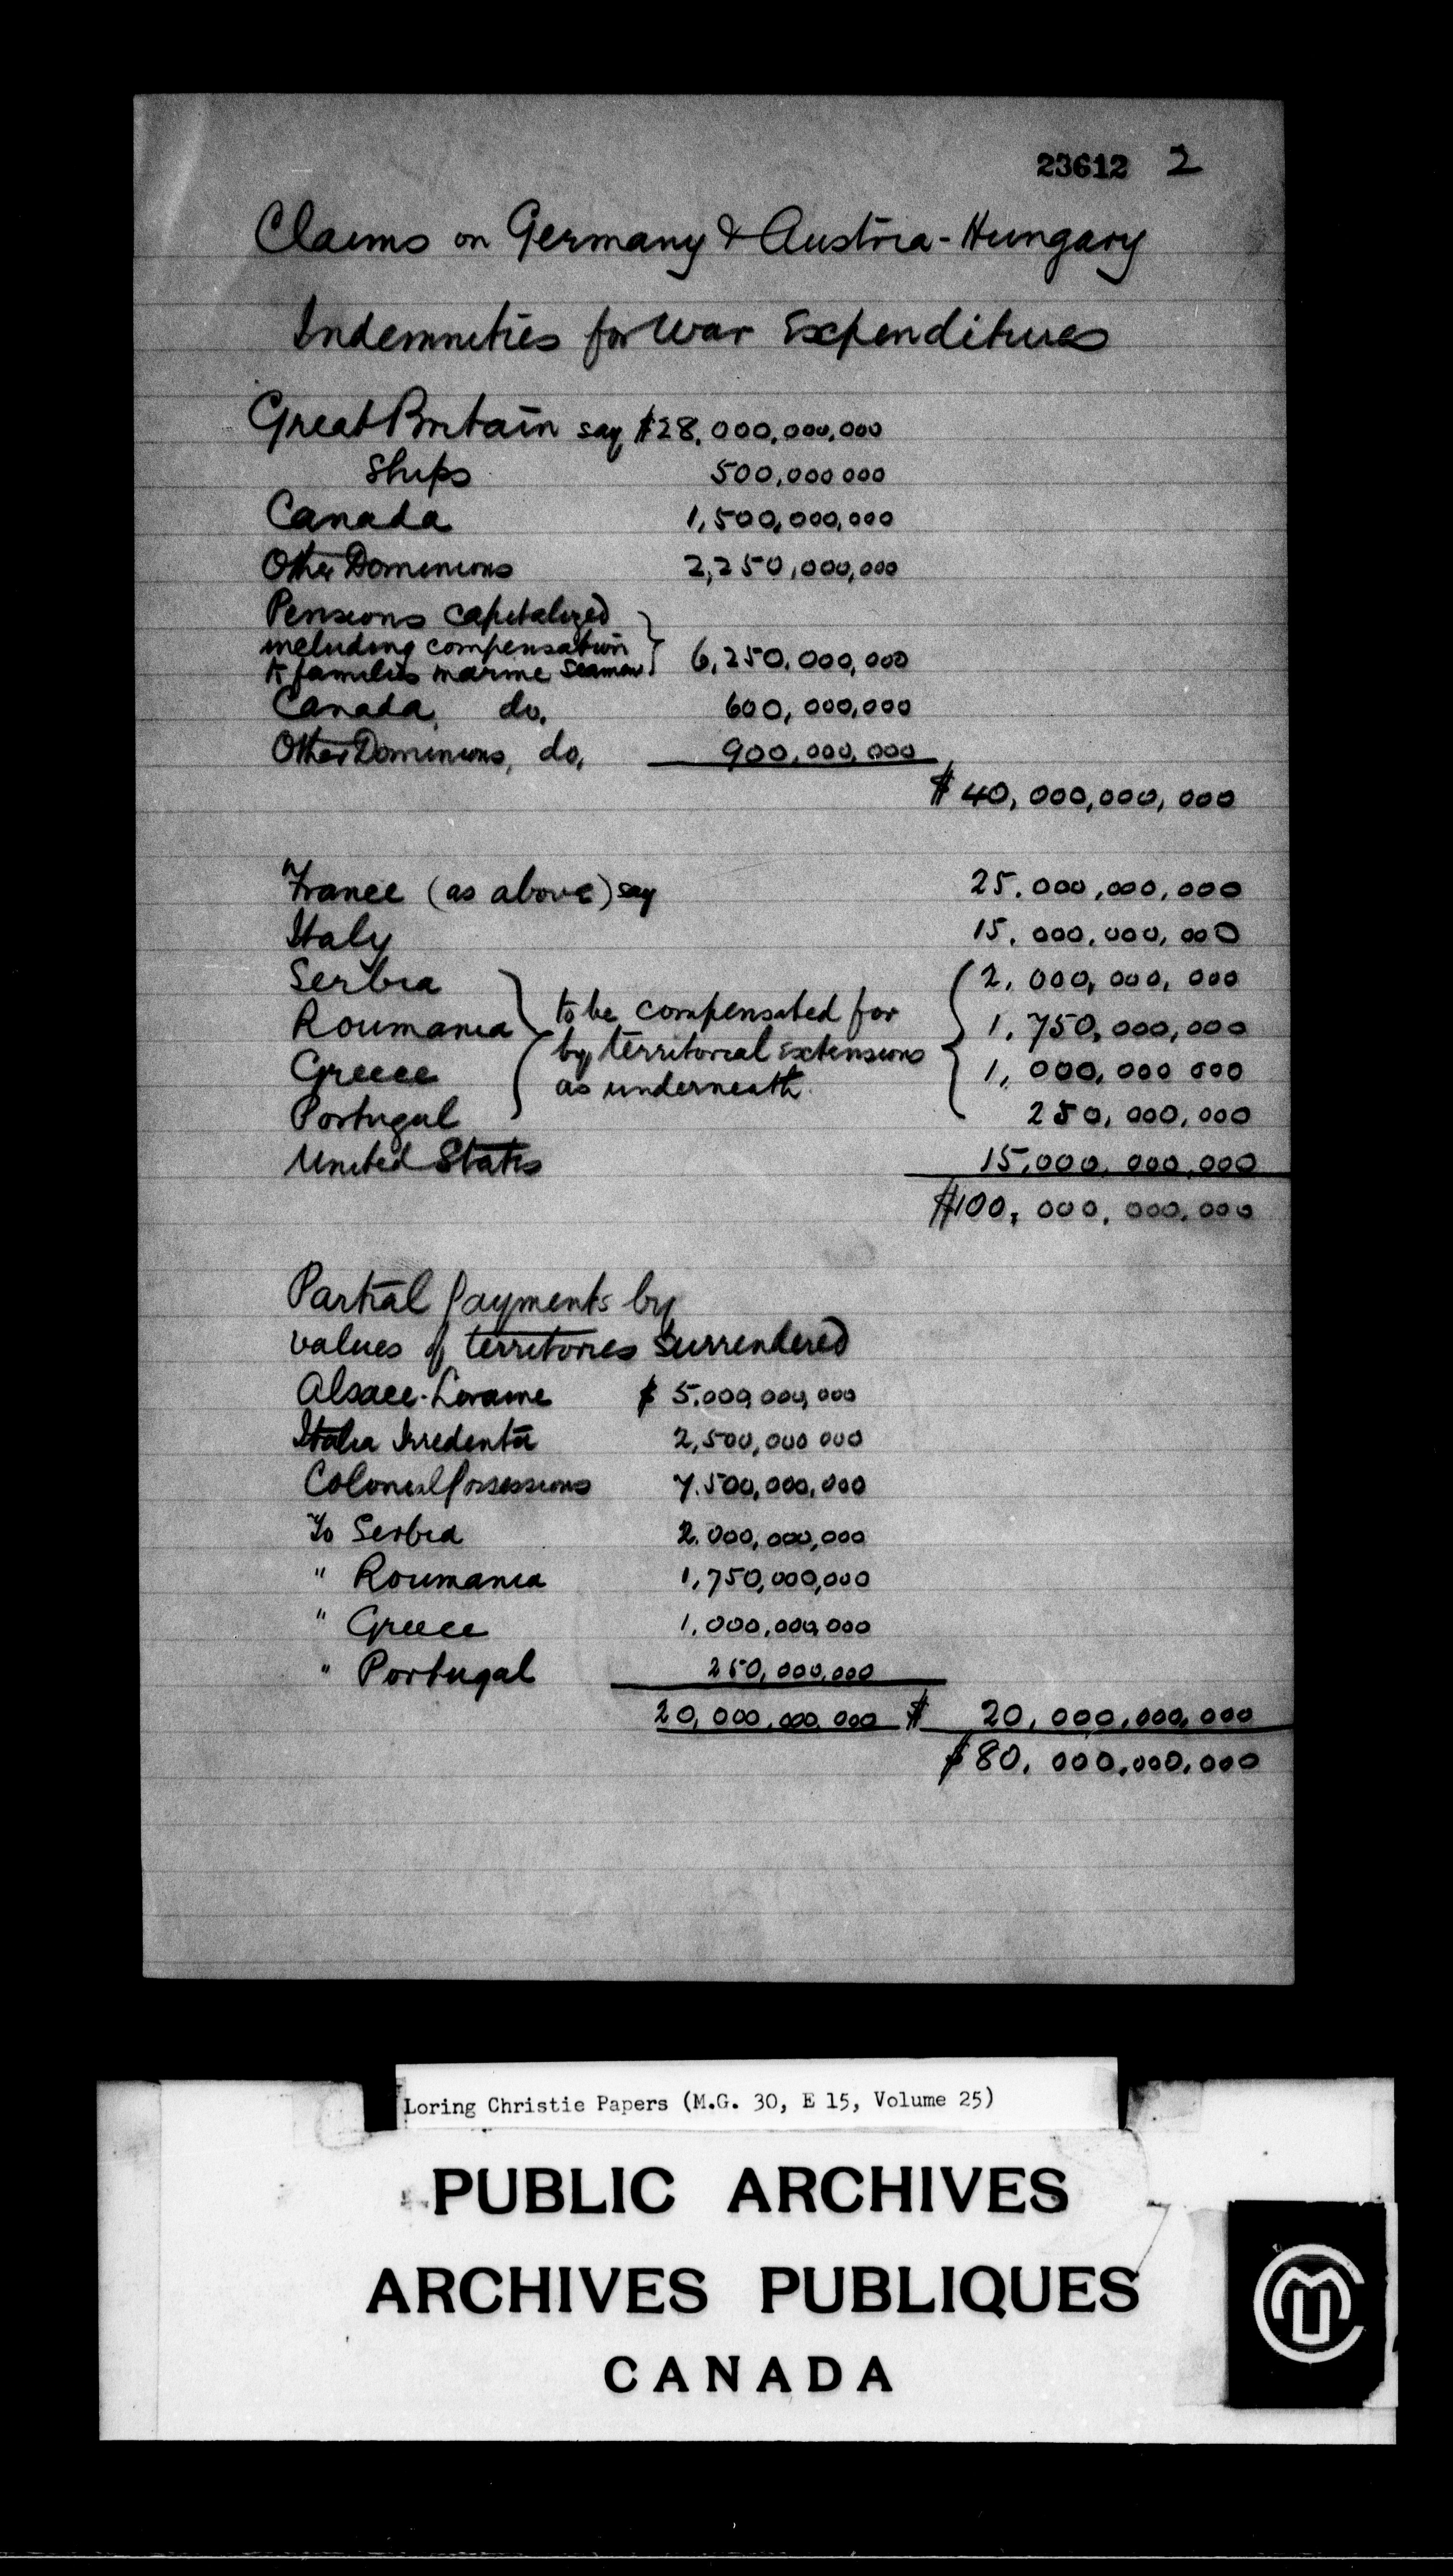 23612 2
Claims on Germany & Austria-Hungary
Indemnities for War Expenditures
Great Britain say $28,000,000,000
Ships 500,000 000
Canada 1,500,000,000
Other Dominions 2,250,000,000
Pensions capitalized
including compensation
to families marine seamen } 6,250,000,000
Canada, do. 600,000,000
Other Dominions, do, 900,000,000
$ 40,000,000,000
France (as above) say 25.000,000,000
Italy 15,000,000,000
Serbia 2,000,000,000
Roumania } to be compensated for { 1,750,000,000
Greece by territorial extensions 1,000,000 000
Portugal as underneath. 250,000,000
United States 15,000,000,000
$100,000,000,000
Partial payments by
values of territories surrendered
Alsace-Loraine $ 5,000,000,000
Italia Irredenta 2,500,000 000
Colonial Possessions 7.500,000,000
To Serbia 2.000,000,000
" Roumania 1,750,000,000
" Greece 1,000,000,000
" Portugal 250,000,000
20,000,000,000 $ 20,000,000,000
$80,000,000,000
Loring Christie Papers (M.G. 30, E 15, Volume 25)
PUBLIC ARCHIVES
ARCHIVES PUBLIQUES
CANADA